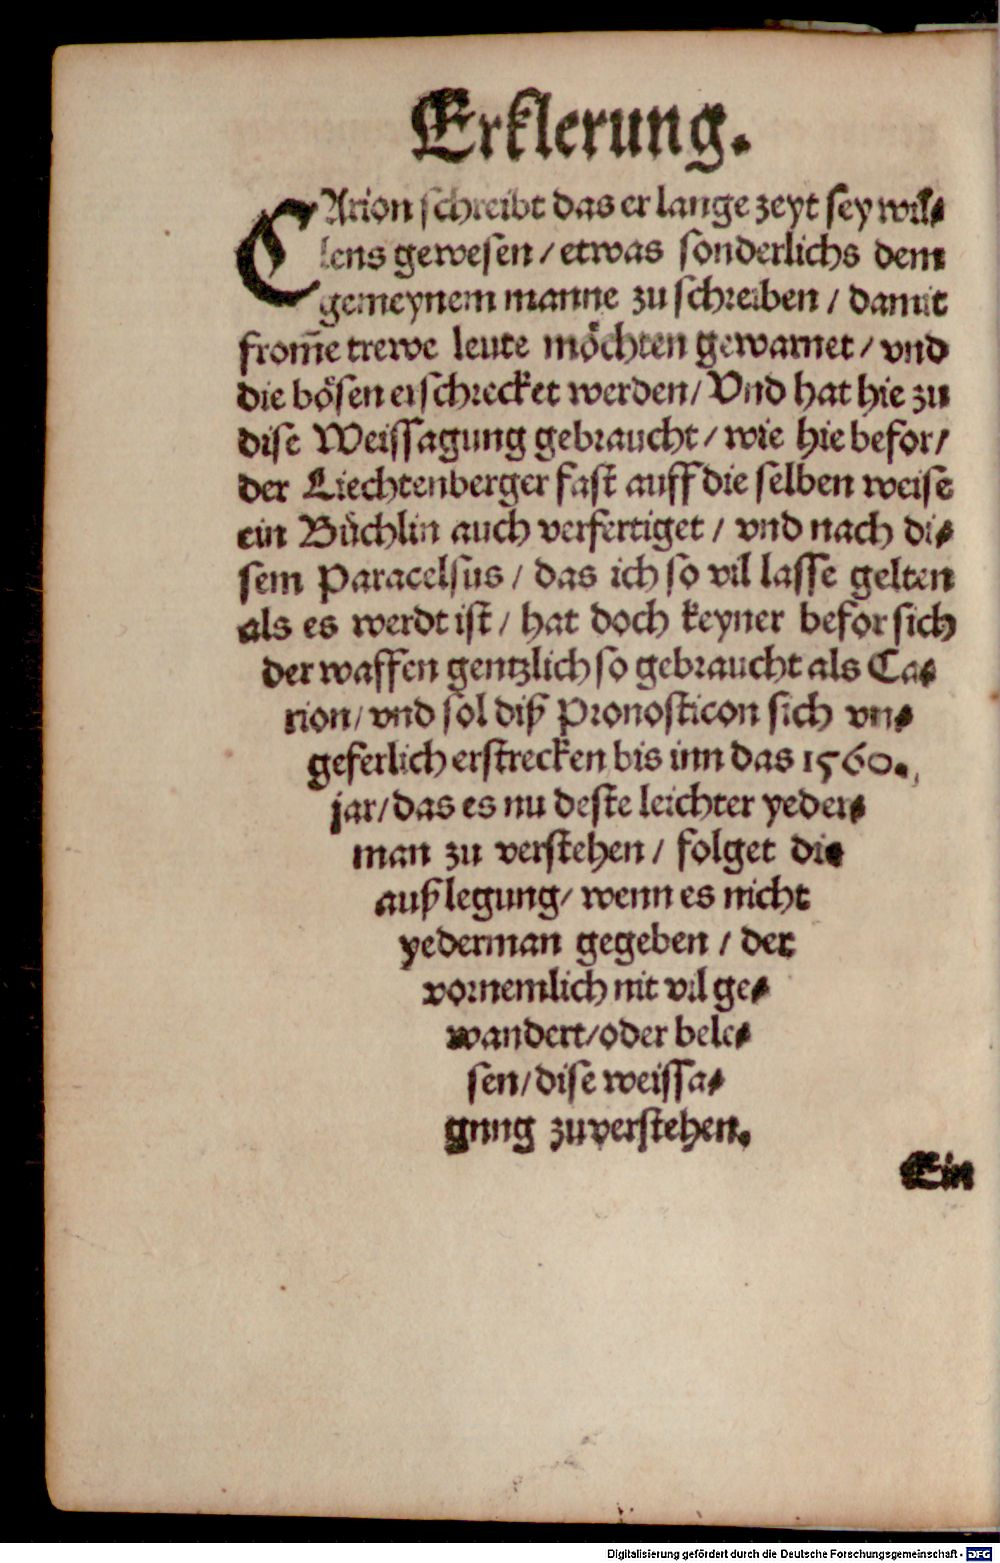 Erklerung.
CArion schreibt das er lange zeyt sey wil⸗
lens gewesen / etwas sonderlichs dem
gemeynem manne zu schreiben / damit
from̃e trewe leute möchten gewarnet / vnd
die bösen erschrecket werden / Vnd hat hie zu
dise Weissagung gebraucht / wie hie befor /
der Liechtenberger fast auff die selben weise
ein Büchlin auch verfertiget / vnd nach di⸗
sem Paracelsus / das ich so vil lasse gelten
als es werdt ist / hat doch keyner befor sich
der waffen gentzlich so gebraucht als Ca⸗
rion / vnd sol diß Pronosticon sich vn⸗
geferlich erstrecken bis inn das 1560.
jar / das es nu deste leichter yeder⸗
man zu verstehen / folget die
außlegung / wenn es nicht
yederman gegeben / der
vornemlich nit vil ge⸗
wandert / oder bele⸗
sen / dise weissa⸗
gung zuverstehen.
Ein
Digitalisierung gefördert durch die Deutsche Forschungsgemeinschaft - DFG